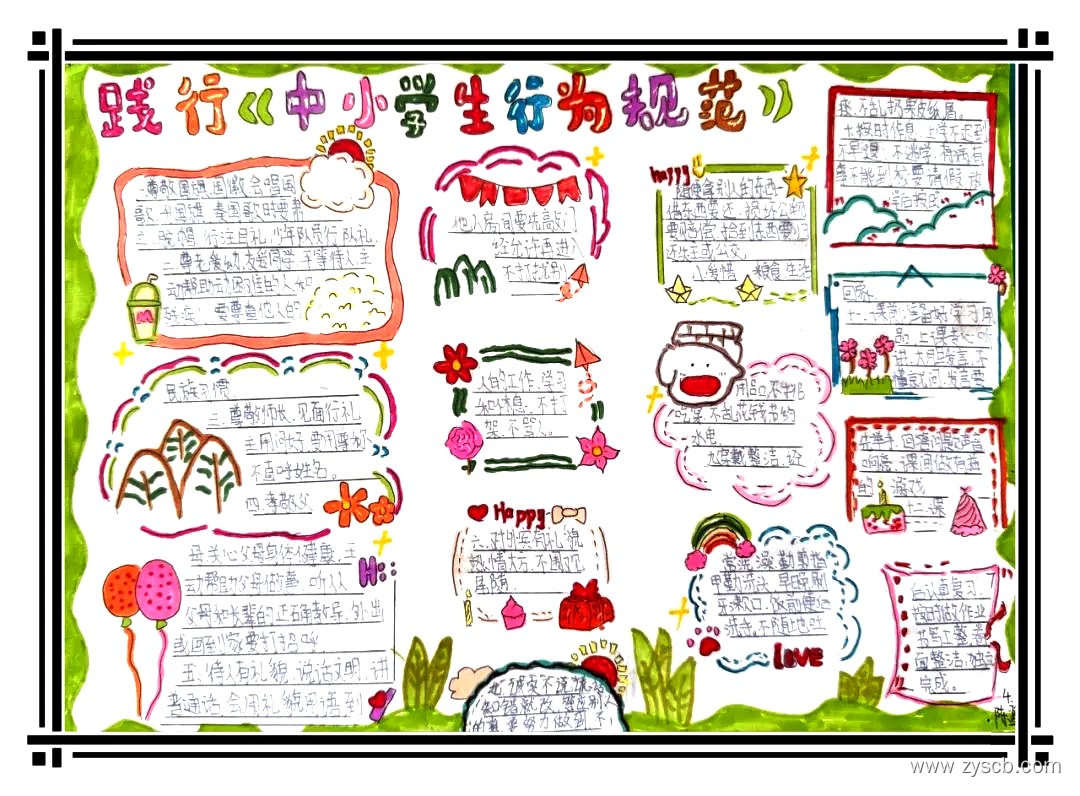 践行《中小学生行为规范》
一.尊敬国旗、国徽,会唱国
歌,升国旗、奏国歌时要肃
立、脱帽、行注目礼,少年队员行队礼.
二.尊老爱幼,友爱同学,平等待人,主
动帮助有困难的人和
残疾人,要尊重他人的
民族习惯
三.尊敬师长,见面行礼
主动问好,要用尊称
不直呼姓名。
四.孝敬父
母,关心父母身体健康,主
动帮助父母做事,听从
父母和长辈的正确教导,外出
或回到家要打招呼
五.待人有礼貌,说话文明,讲
普通话,会用礼貌用语,到
Hi
他人房间要先敲门
经允许再进入
不打扰别
人的工作,学习
和休息,不打
架,不骂人。
Happy
六.对外宾有礼貌
热情大方,不围观
尾随
七.诚实不说谎话
知错就改
努力做到,不
happy
随便拿别人的东西
借东西要还,损坏公物
要赔偿,拾到东西要归
还失主或公交。
八.爱惜粮食,生活
用品,不挑
吃穿,不乱花钱,节约
水电.
九.穿戴整洁,经
常洗澡,勤剪指
甲,勤洗头,早晚刷
牙漱口,饭前便后
洗手。不随地吐
love
痰,不乱扔果皮纸屑。
十.按时作息,上学不迟到
不早退,不逃学,有病有
事不能到校要请假,放
学后按时
回家.
十一.课前准备好学习用
品,上课专心听
讲,大胆发言,不
懂就问,发言要
先举手,回答问题声音
响亮,课间做有益
的游戏
十二.课
后认真复习,
按时做作业
书写工整,卷
面整洁,独立
完成。
4.
陈
www.zyscb.com